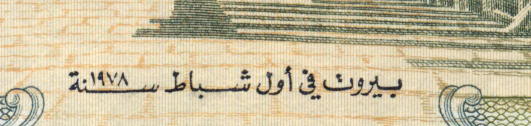 بيروت في أول شباط سنة ١٩٧٨